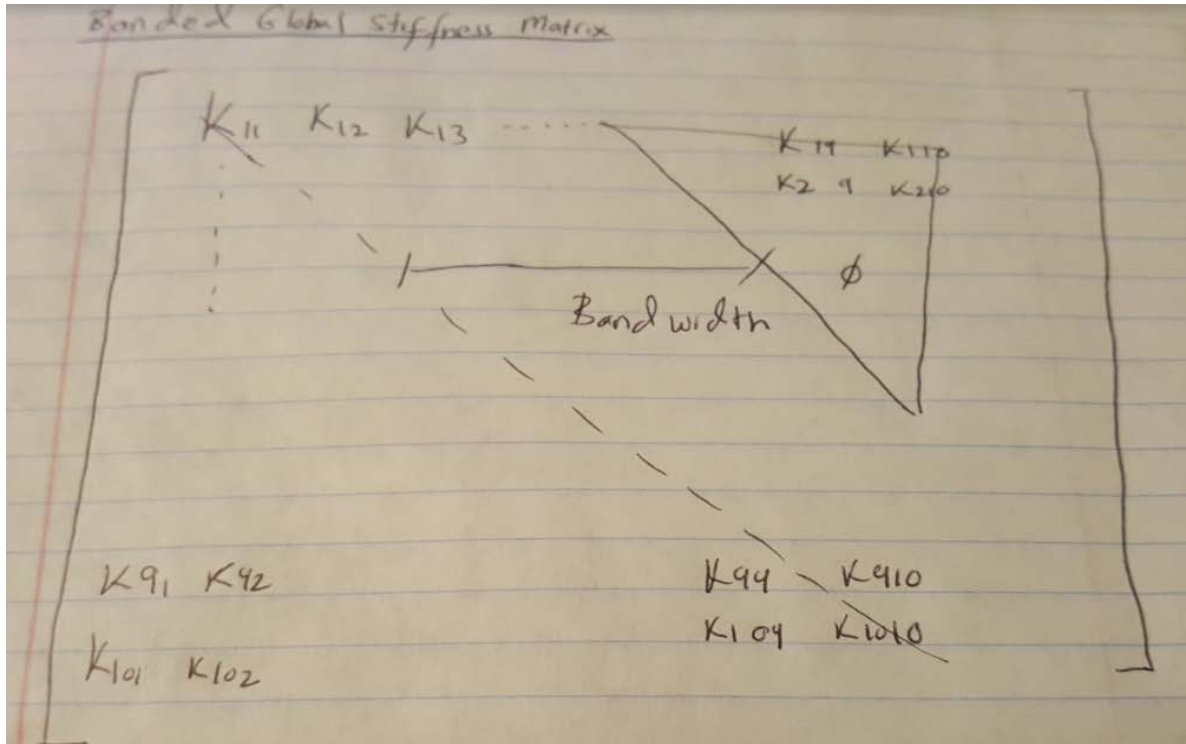 Banded Global Stiffness Matrix
K11 K12 K13 ...... K19 K110
K2 9 K210
ϕ
Bandwidth
K91 K92 K99 K910
K109 K1010
K101 K102